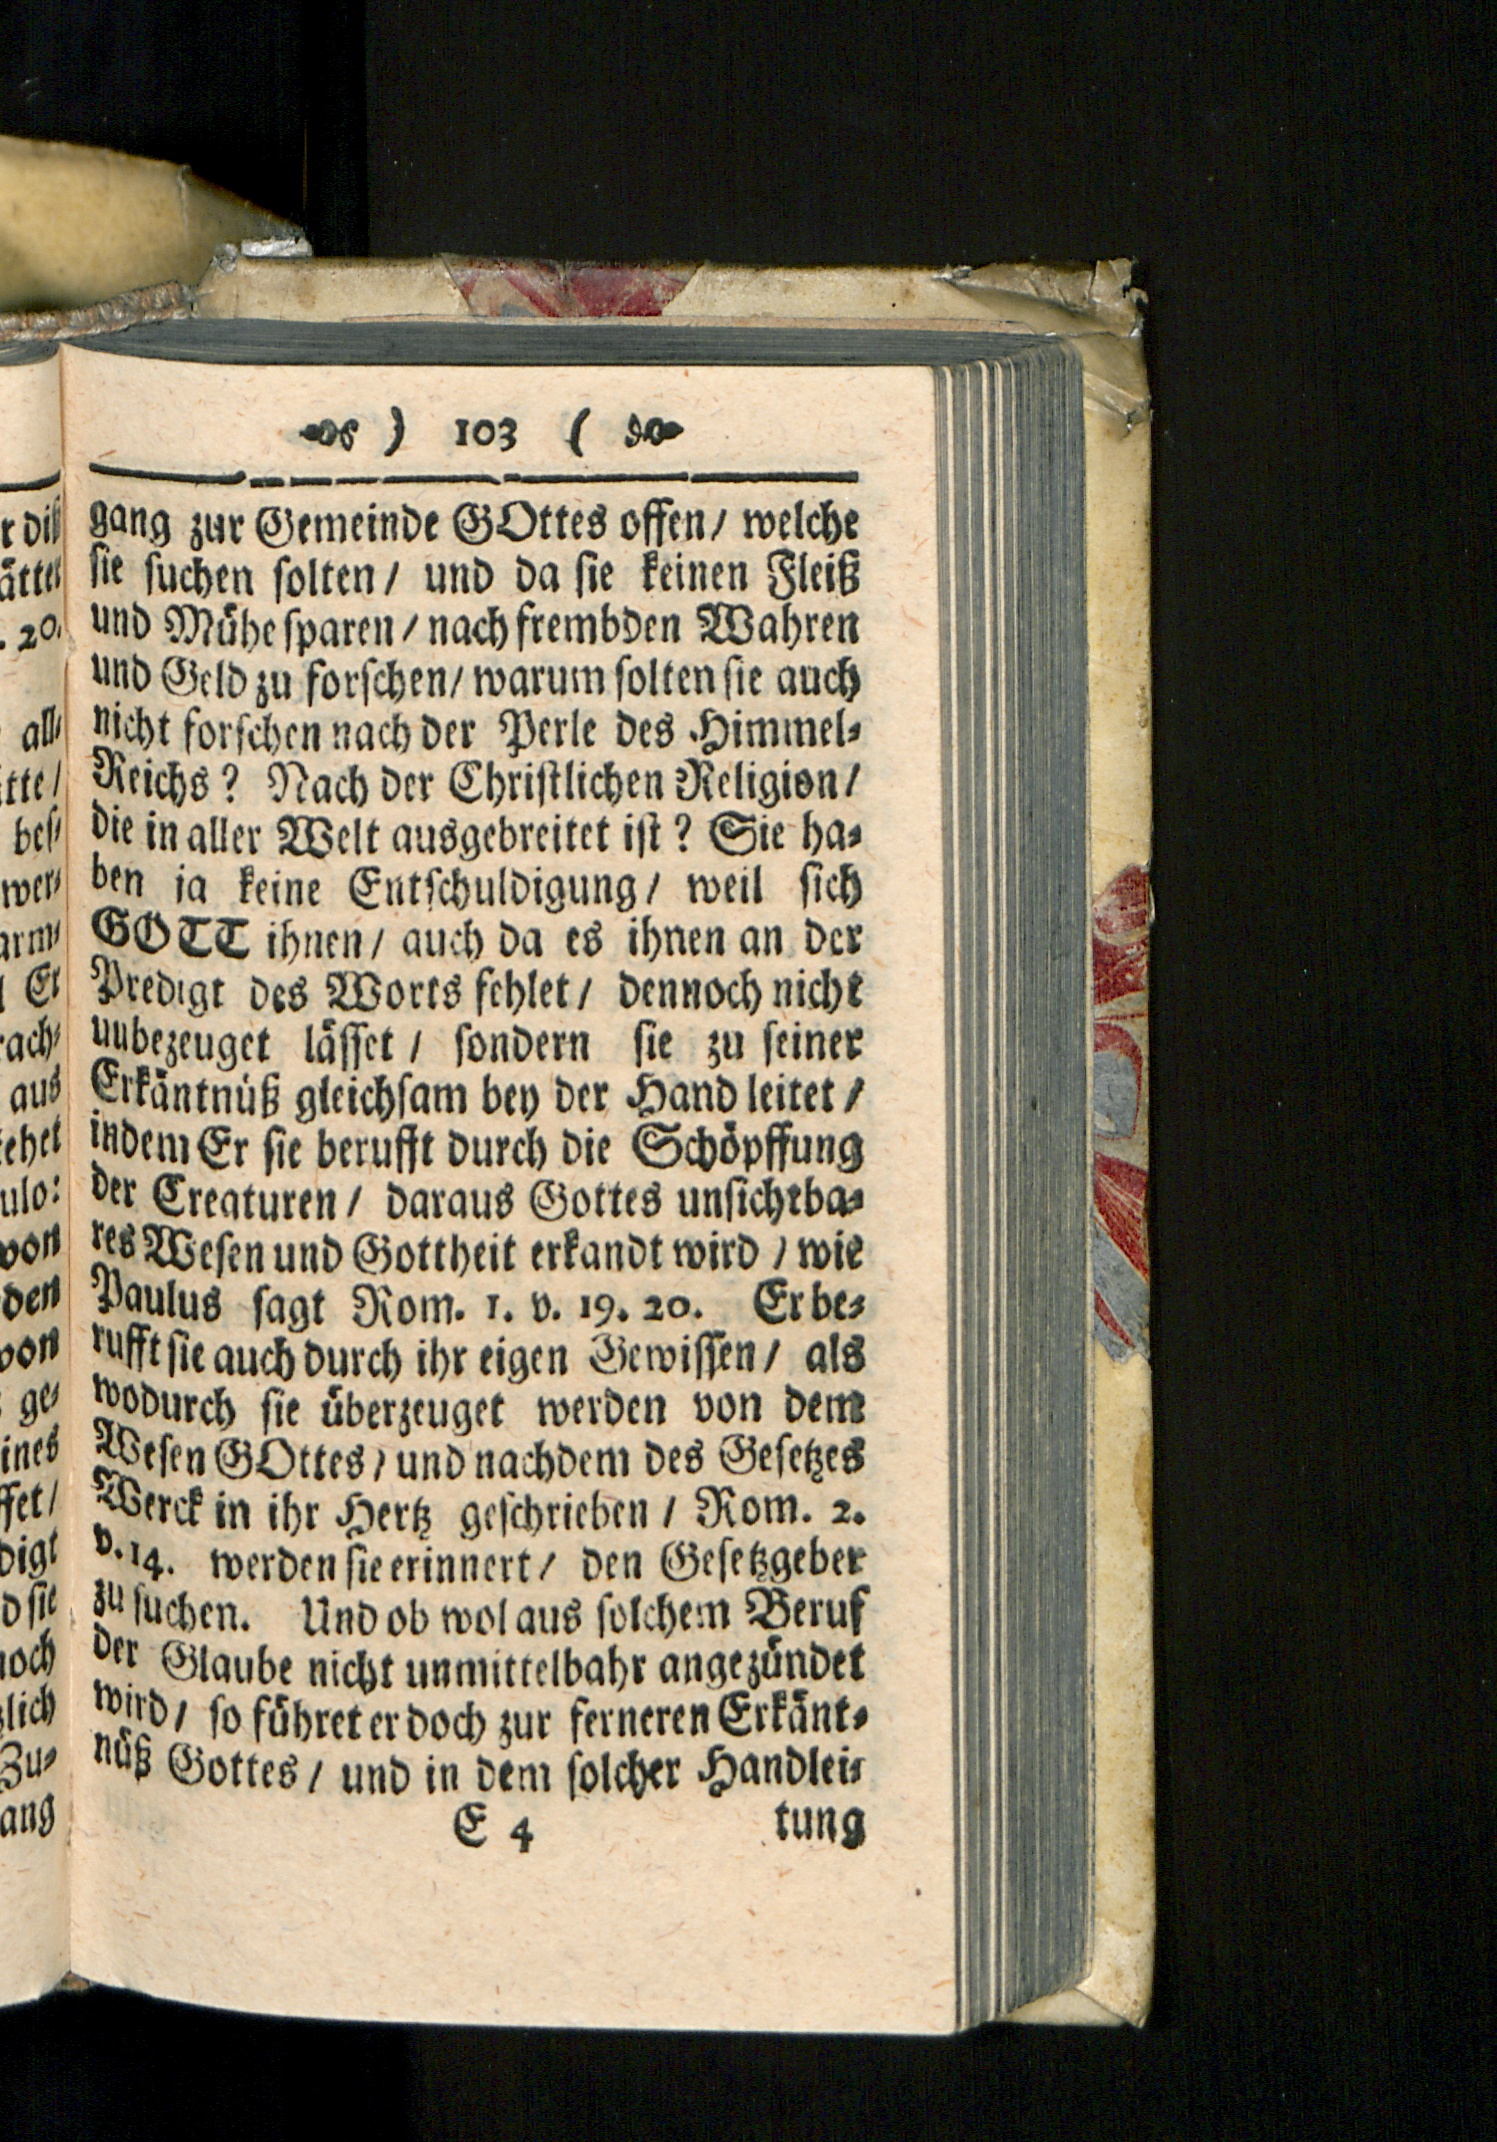 ) 103 (
gang zur Gemeinde GOttes offen/ welche
sie suchen solten/ und da sie keinen Fleiß
und Mühe sparen/ nach frembden Wahren
und Geld zu forschen/ warum solten sie auch
nicht forschen nach der Perle des Himmel-
Reichs? Nach der Christlichen Religion/
die in aller Welt ausgebreitet ist? Sie ha-
ben ja keine Entschuldigung/ weil sich
GOTT ihnen/ auch da es ihnen an der
Predigt des Worts fehlet/ dennoch nicht
unbezeuget lässet/ sondern sie zu seiner
Erkäntnüß gleichsam bey der Hand leitet/
indem Er sie berufft durch die Schöpffung
der Creaturen/ daraus Gottes unsichtba-
res Wesen und Gottheit erkandt wird/ wie
Paulus sagt Rom. 1. v. 19. 20. Er be-
rufft sie auch durch ihr eigen Gewissen/ als
wodurch sie überzeuget werden von dem
Wesen GOttes/ und nachdem des Gesetzes
Werck in ihr Hertz geschrieben/ Rom. 2.
v. 14. werden sie erinnert/ den Gesetzgeber
zu suchen. Und ob wol aus solchem Beruf
der Glaube nicht unmittelbahr angezündet
wird/ so führet er doch zur ferneren Erkänt-
nüß Gottes/ und in dem solcher Handlei-
E 4 tung